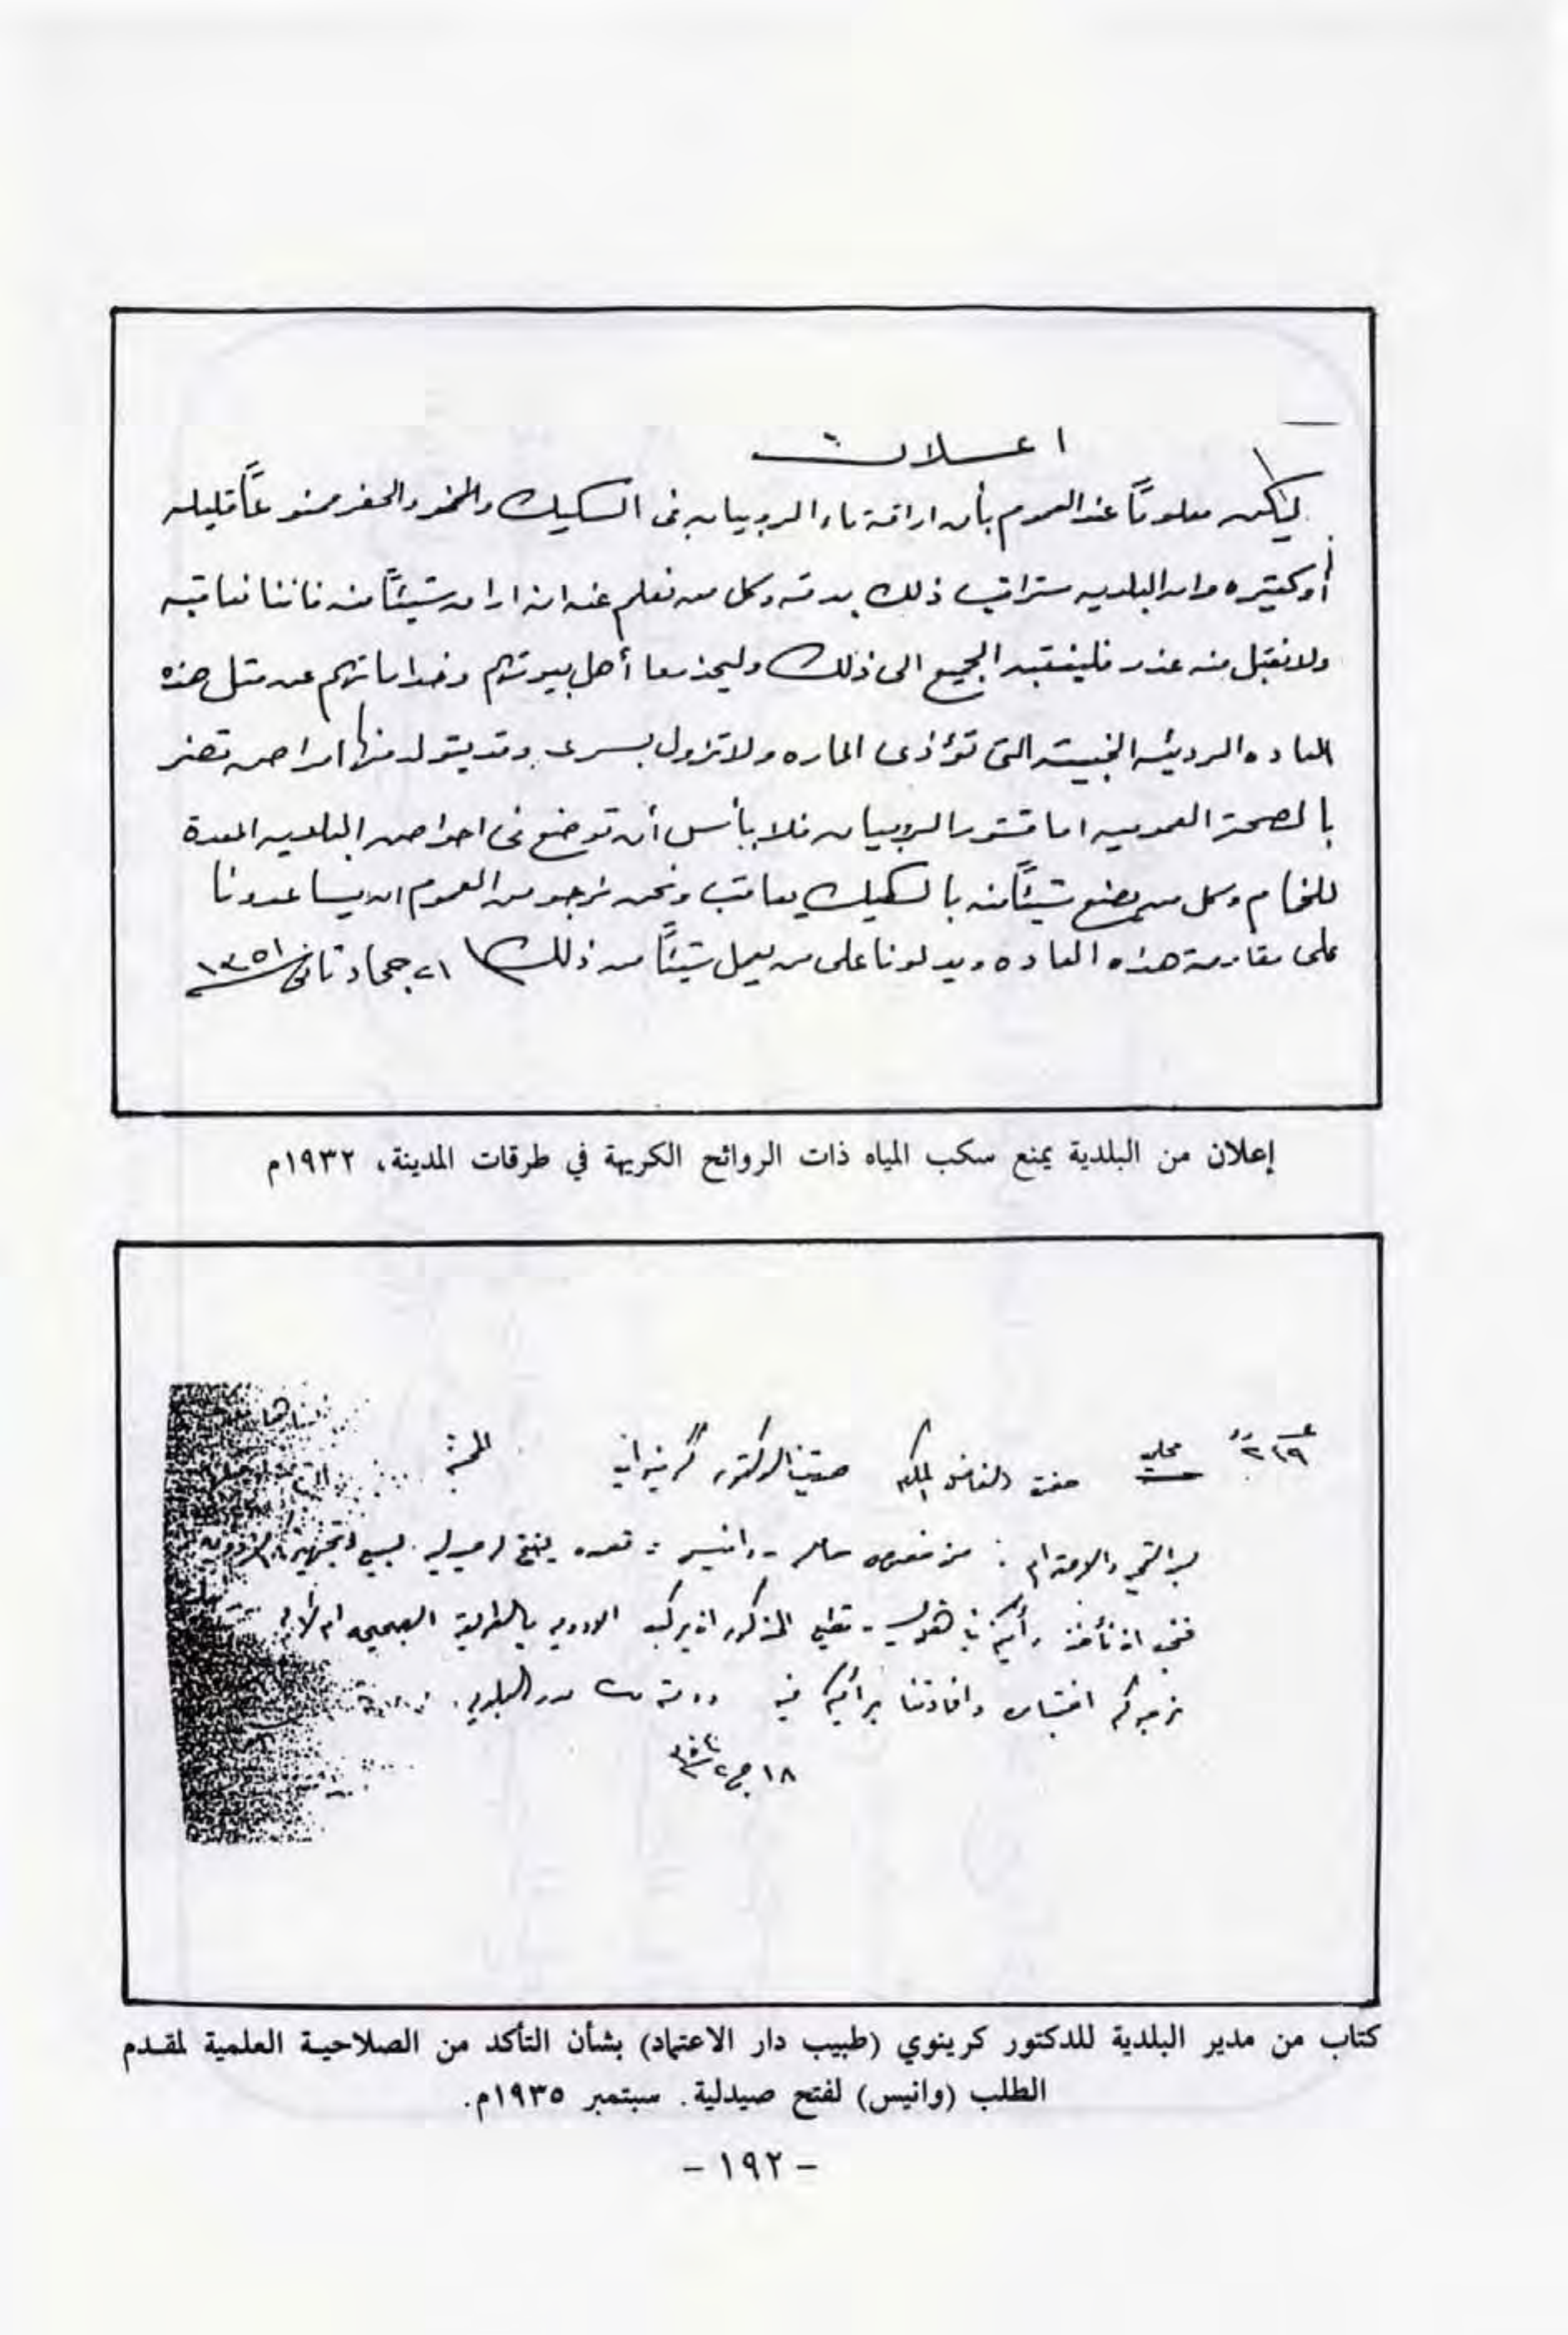 اعلان
ليكن معلوماً عند العموم بأن اراقة ماء الربيان فى السكيك والحفر ممنوعاً قليله
أو كثيره وان البلديه ستراقب ذلك بدقه وكل من نعلم عنه انه اراق شيئاً منه فاننا نعاقبه
ولا نقبل منه عذر فلينتبه الجميع الى ذلك وليحذروا أهل بيوتهم وخداماتهم عن مثل هذه
العاده الرديئه الخبيثه التى تؤذى الماره ولا تزول بسرعه وقد يتولد منها امراض تضر
بالصحة العموميه اما قشور الربيان فلا بأس أن توضع فى احواض البلديه المعدة
للخمام وكل من يضع شيئاً منه بالسكيك يعاقب ونحن نرجو من العموم ان يساعدونا
على مقاومة هذه العاده ويدلونا على من يعمل شيئاً من ذلك ٢١ جماد ثانى ١٣٥١
إعلان من البلدية يمنع سكب المياه ذات الروائح الكريهة في طرقات المدينة، ١٩٣٢م
حضرة الفاضل المكرم الدكتور گرينوى المحترم
بعد التحيه والاحترام : وانيس قصده يفتح لبيع وتجهيز
فنحب ان نأخذ رأيكم المذكور ان يركب الادويه بالطريقة الصحيحه ام لا
نرجوكم وافادتنا برأيكم فيه ودمتم مدير البلديه
١٨ ج٢
كتاب من مدير البلدية للدكتور كرينوي (طبيب دار الاعتماد) بشأن التأكد من الصلاحية العلمية لمقدم
الطلب (وانيس) لفتح صيدلية. سبتمبر ١٩٣٥م.
- ١٩٢ -